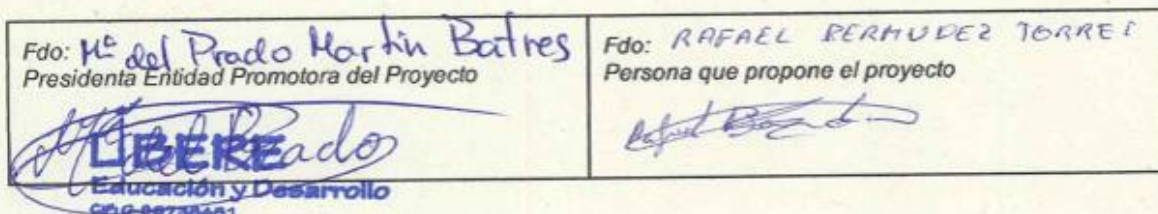 Fdo: Mª del Prado Martin Batres
Presidenta Entidad Promotora del Proyecto
M del Prado
LIBERE
Educación y Desarrollo
Fdo: RAFAEL BERMUDEZ TORRES
Persona que propone el proyecto